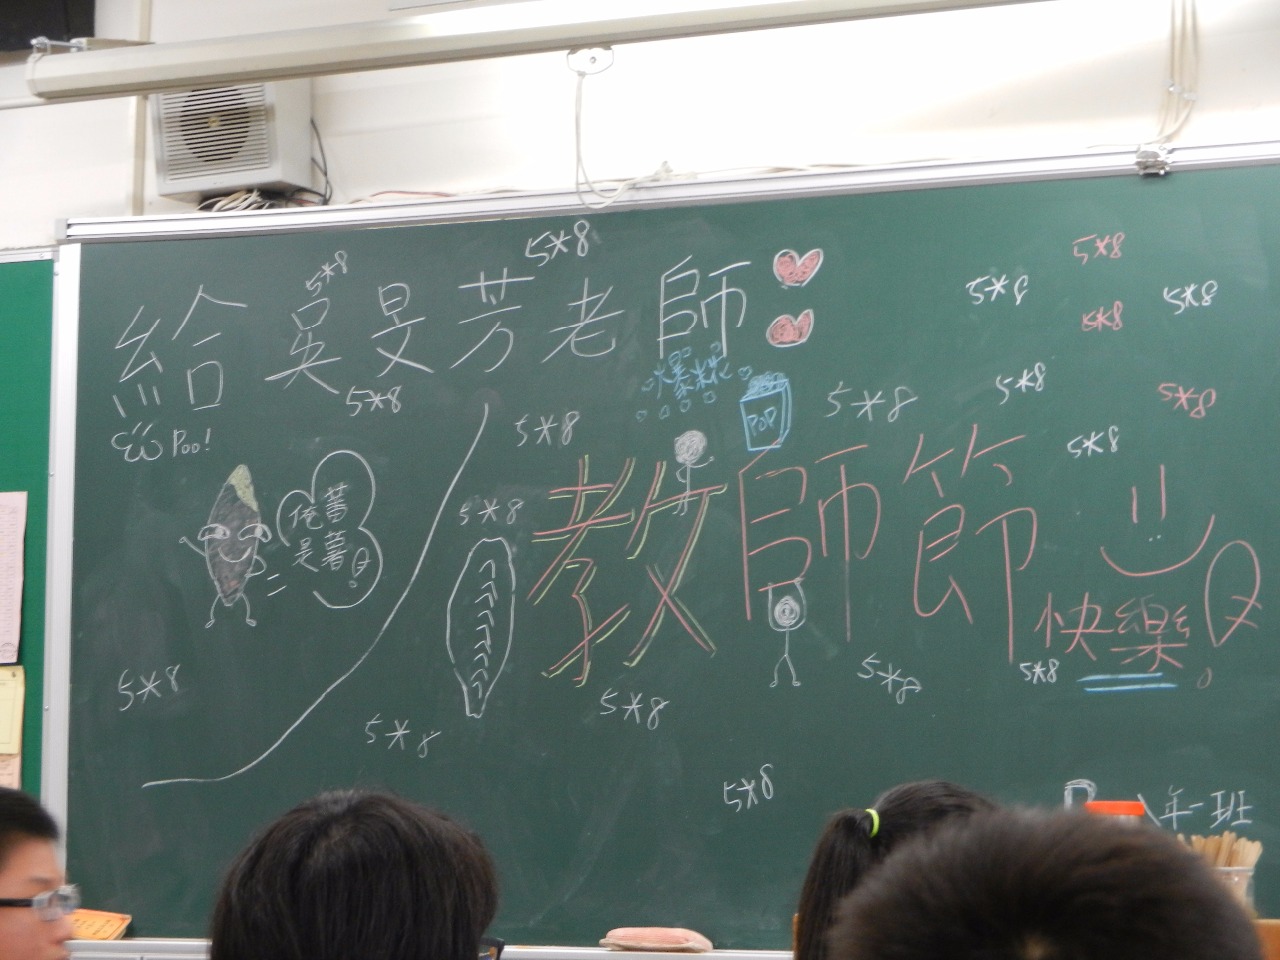 給吳旻芳老師
5*8
5*8
5*8
5*8
5*8
5*8
5*8
5*8
5*8
5*8
5*8
5*8
5*8
爆米花
POP
Poo!
俺是蕃薯
教師節
快樂
5*8
5*8
5*8
5*8
5*8
5*8
5*8
年一班